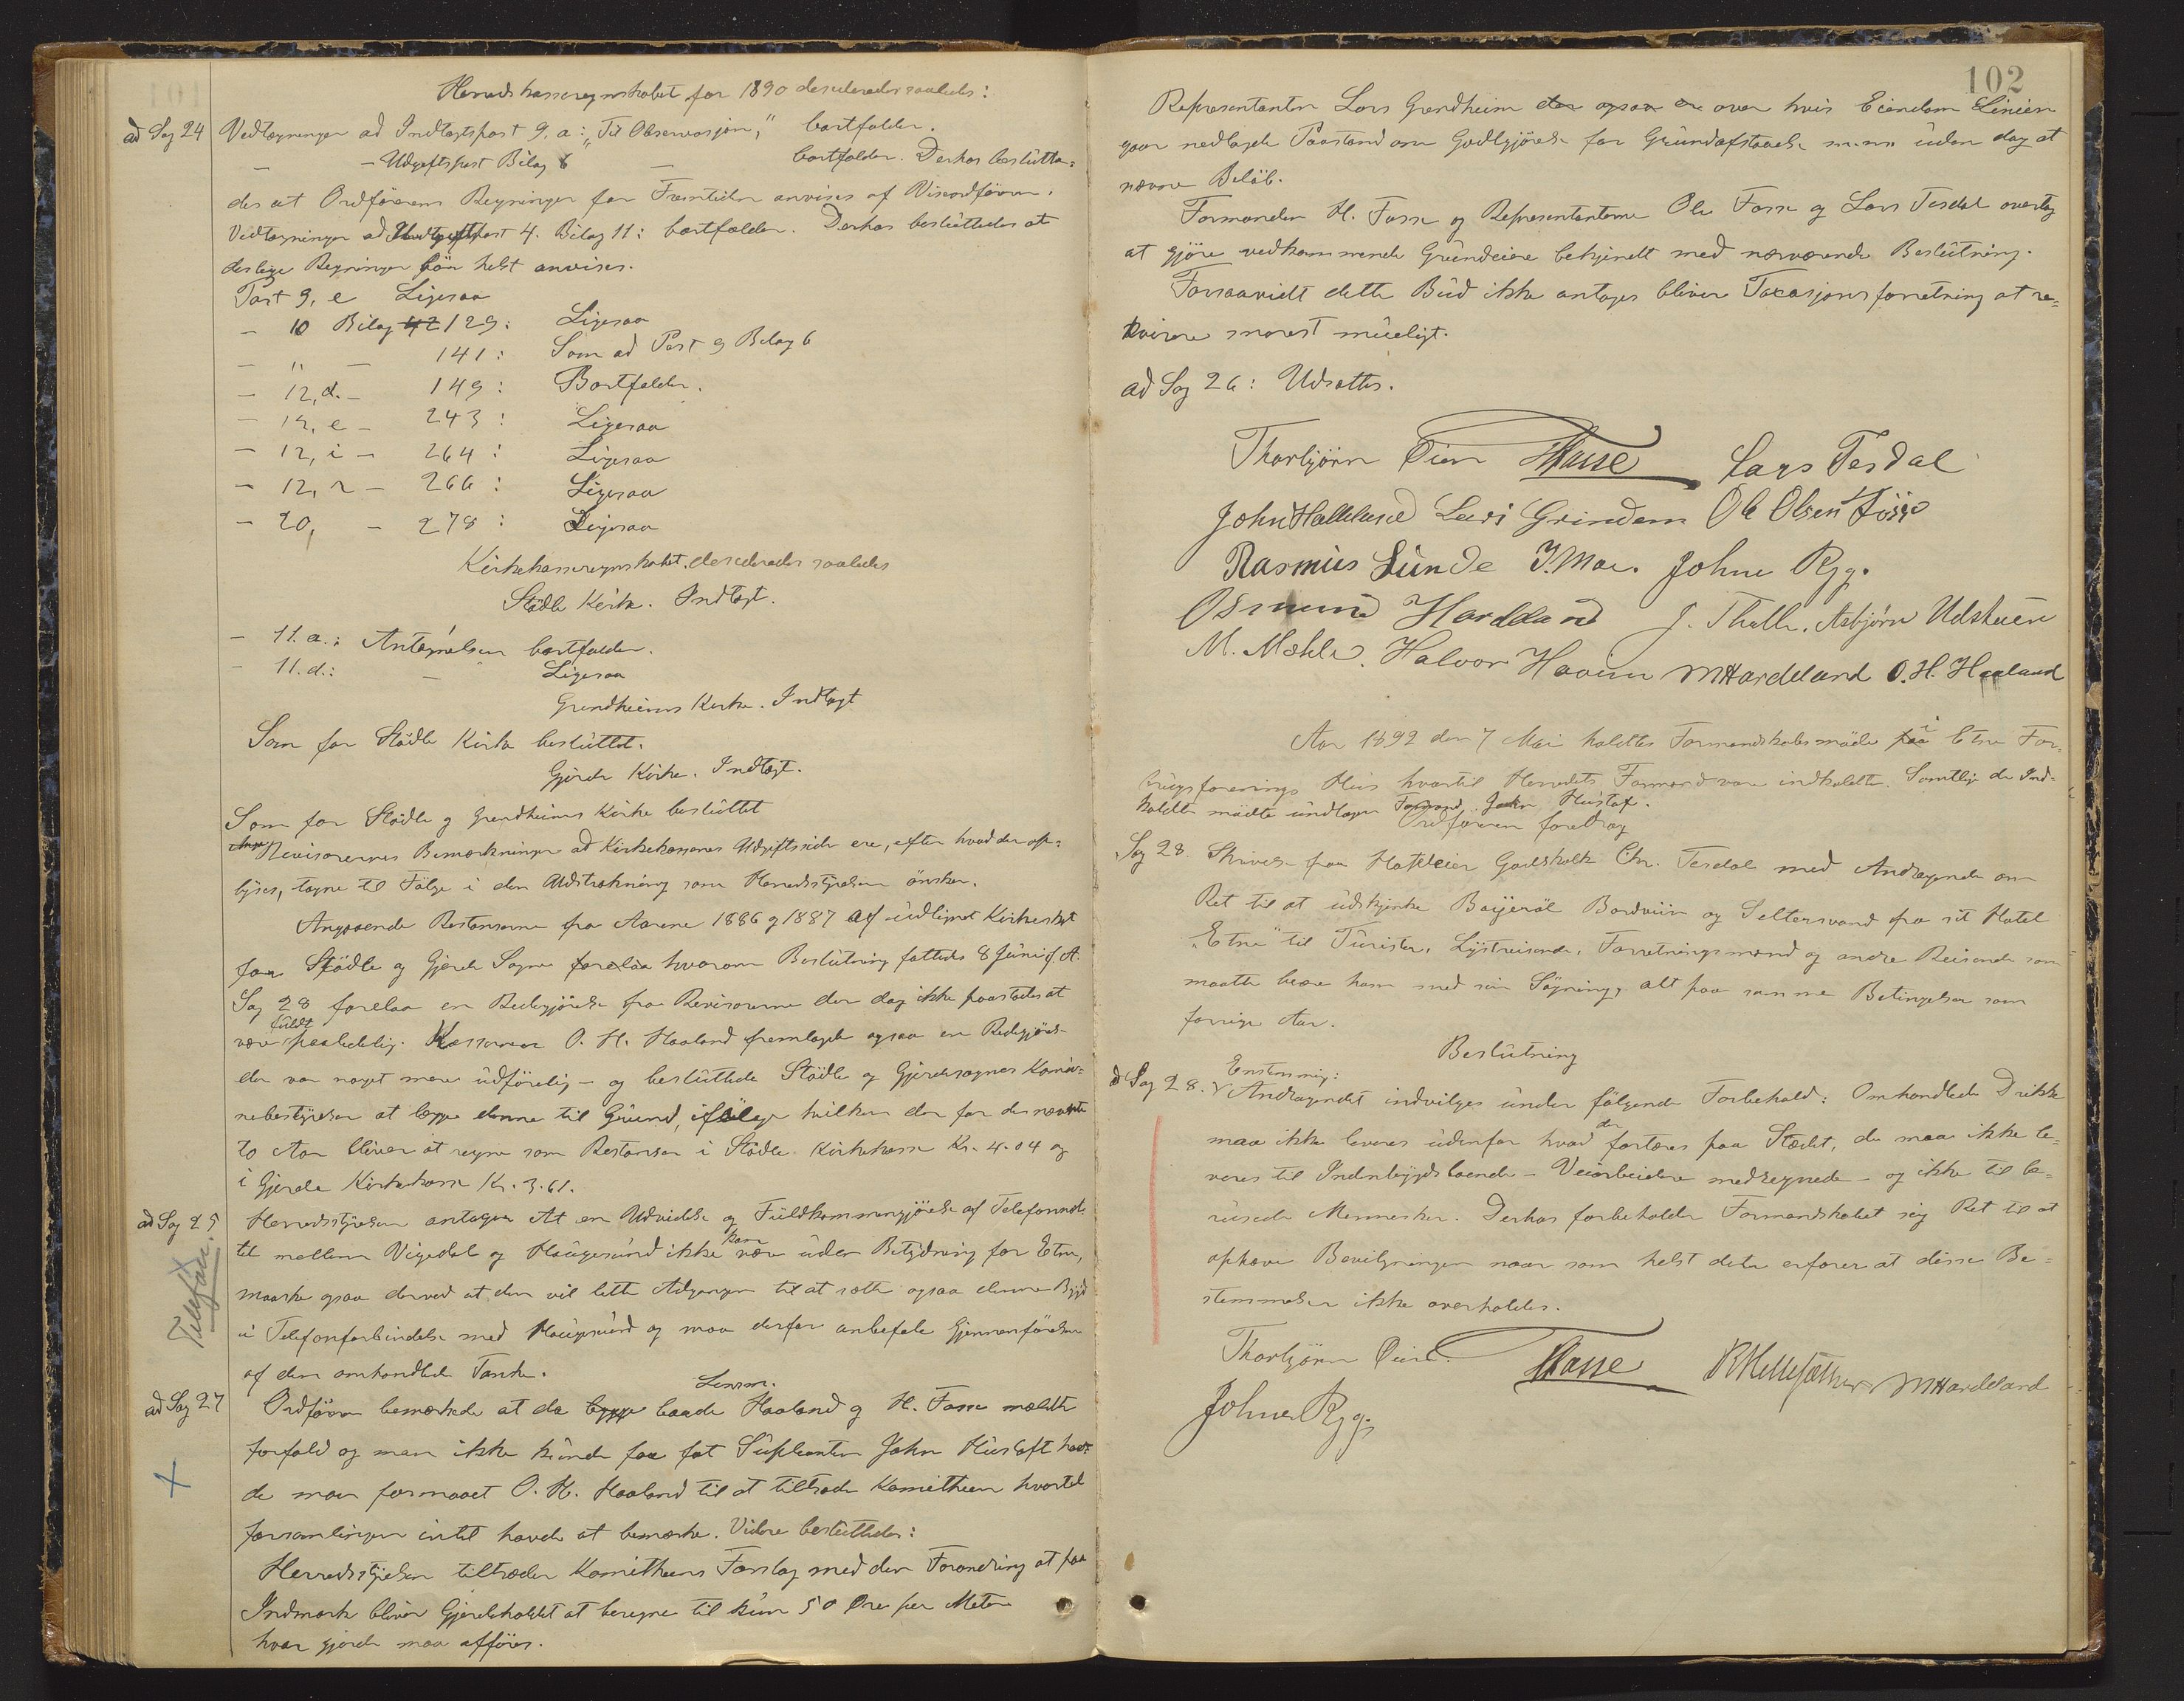 Herredskasseregnskabet for 1890 decideredes saaledes:
ad Sag 24 Vedtegninger ad Indtægtspost 9, a: "Til Observasjon," bortfalder.
— – Udgiftspost Bilag 6 — bortfalder. Derhos beslutte-
des at Ordførerens Regninger for Fremtiden anvises af Viseordføreren.
Vedtegningen ad Udgiftspost 4. Bilag 11: bortfalder. Derhos besluttedes at
deslige Regninger bør helst anvises.
Post 9, e Ligesaa
– 10 Bilag 42 129: Ligesaa
– " – 141: Som ad Post 9 Bilag 6
– 12, d. – 149: Bortfalder.
– 12, e – 243: Ligesaa
– 12, i – 264: Ligesaa
– 12, r – 266: Ligesaa
– 20, – 278: Ligesaa
Kirkekasseregnskabet decideredes saaledes
Stødle Kirke. Indtægt.
– 11. a.: Antegnelsen bortfalder.
– 11. d.: – Ligesaa
Grindheims Kirke. Indtægt
Som for Stødle Kirke besluttet.
Gjerde Kirke. Indtægt.
Som for Stødle og Grindheims Kirke besluttet
Revisorernes Bemærkninger ad Kirkekassernes Udgiftsside ere, efter hvad der op-
lyses, tagne til Følge i den Udstrækning som Herredsstyrelsen ønsker.
Angaaende Restanserne fra Aarene 1886 og 1887 af udlignet Kirkeskat
for Stødle og Gjerde Sogne forelaa hvorom Beslutning fattedes 8 Juni f. A.
Sag 28 forelaa en Redegjørelse fra Revisorerne der dog ikke paastodes at
være fuldt paalidelig. Kassereren O. H. Haaland fremlagde ogsaa en Redegjørelse
der var noget mere udførlig – og besluttede Stødle og Gjerdesognes Komu-
nebestyrelser at lægge denne til Grund, ifølge hvilken der for de nævnte
to Aar bliver at regne som Restanser i Stødle Kirkekasse Kr. 4.04 og
i Gjerde Kirkekasse Kr. 3.61.
ad Sag 25 Herredsstyrelsen antager At en Udvidelse og Fuldkommengjørelse af Telefonnet-
tet mellem Vigedal og Haugesund ikke kan være uden Betydning for Etne,
maaske ogsaa derved at den vil lette Adgangen til at sætte ogsaa denne Bygd
Telefon.
i Telefonforbindelse med Haugesund og maa derfor anbefale Gjennemførelsen
af den omhandlede Tanke.
ad Sag 27 Ordføren bemærkede at da begge baade Lensm. Haaland og H. Fosse meldte
forfald og man ikke kunde faa fat Supleanten John Hustoft hav-
de man formaaet O. H. Haaland til at tiltræde Komitheen hvortil
forsamlingen intet havde at bemærke. Videre besluttedes:
Herredsstyrelsen tiltræder Komitheens Forslag med den Forandring at paa
Indmark bliver Gjerdeholdet at beregne til kun 50 Øre per Meter
hvor gjerde maa opføres.
102
Representanten Lars Grindheim der ogsaa er over hvis Eiendom Linien
gaar nedlagde Paastand om Godtgjørelse for Grundafstaaelse m.m. uden dog at
nævne Beløb.
Formanden H. Fosse og Representanterne Ole Fosse og Lars Tesdal overtog
at gjøre vedkommende Grundeiere bekjendt med nærværende Beslutning.
Forsaavidt dette Bud ikke antages bliver Taxasjonsforretning at re-
kvirere snarest mueligt.
ad Sag 26: Udsattes.
Thorbjørn Øien HFosse Lars Tesdal
John Halleland Lars Grindem Ole Olsen Fosse
Rasmus Lunde J. Moe. Johne Rygg.
Osmund Hardeland J. Thalle. Asbjørn Udstuen
M. Mæhle. Halvor Haaeim MHardeland O. H. Haaland
Aar 1892 den 7 Mai holdtes Formandskabsmøde paa i Etne For-
brugsforenings Hus hvortil Herredets Formænd var indkaldte. Samtlige de Ind-
kaldte mødte undtagen Formand John Hustoft.
Ordføreren foredrog
Sag 28. Skrivelse fra Hoteleier Godskalk Chr. Tesdal med Andragende om
Ret til at udskjænke Bayerøl Bordviin og Seltersvand fra sit Hotel
"Etne" til Turister, Lystreisende, Forretningsmænd og andre Reisende som
maatte beære ham med sin Søgning, alt paa samme Betingelser som
forrige Aar.
Beslutning
ad Sag 28. Enstemmig: Andragendet indvilges under følgende Forbehold: Omhandlede Drikke
maa ikke leveres udenfor hvad der fortæres paa Stedet, de maa ikke le-
veres til Indenbygdsboende – Veiarbeidere medregnede – og ikke til be-
rusede Mennesker. Derhos forbeholder Formandskabet sig Ret til at
ophæve Bevilgningen naar som helst dette erfarer at disse Be-
stemmelser ikke overholdes.
Thorbjørn Øien. HFosse MHardeland
Johne Rygg.